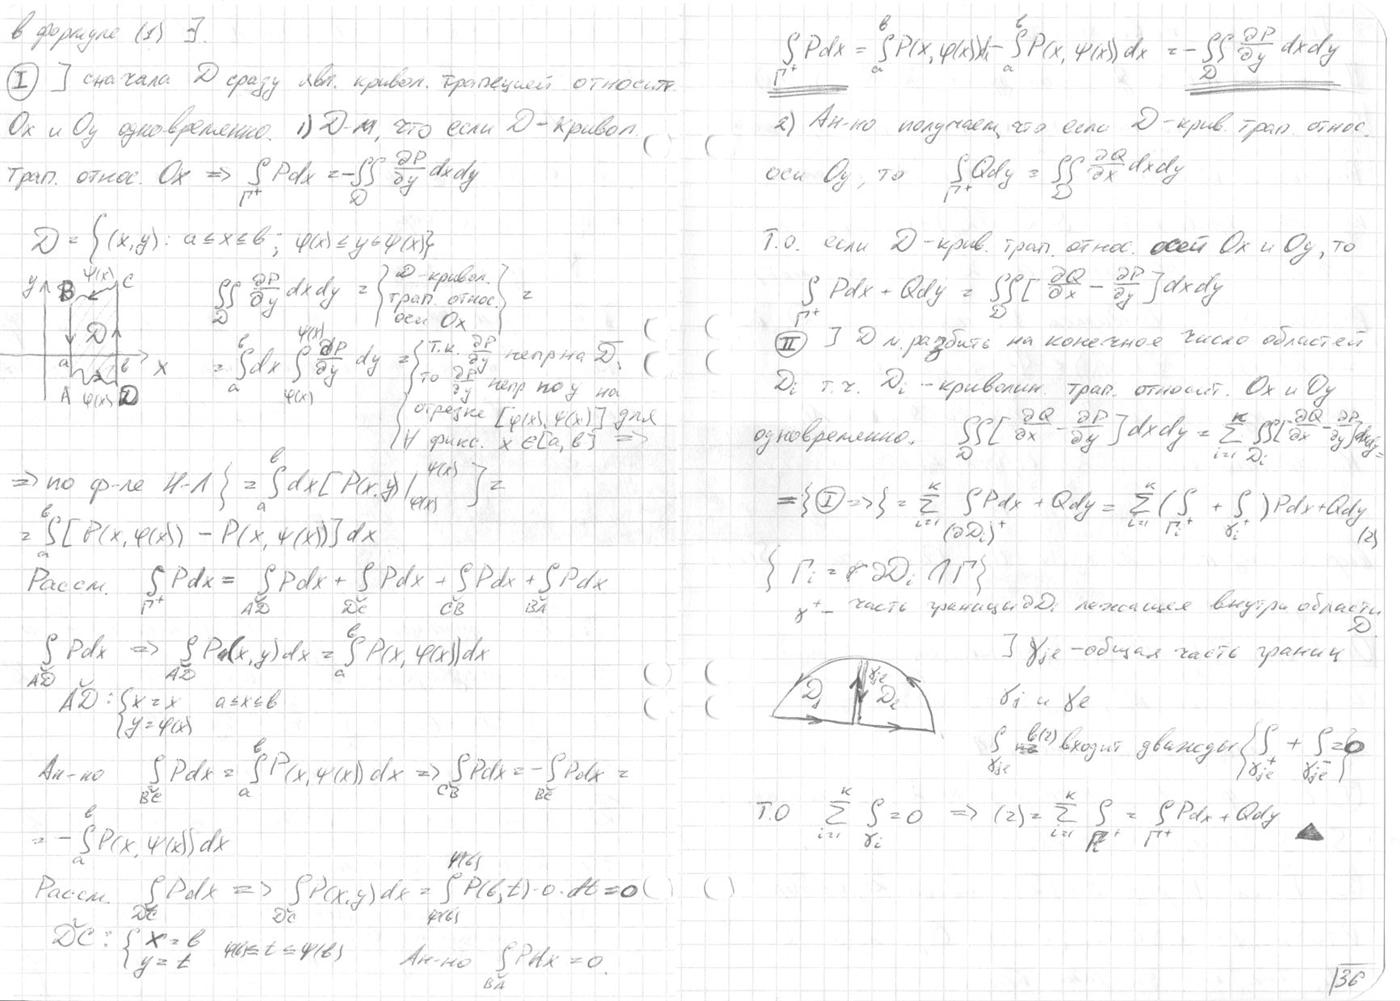 в формуле (1) ∃.
(I) ] сначала D сразу явл. кривол. трапецией относит.
Ox и Oy одновременно. 1) D-м, что если D - кривол.
трап. относ. Ox => ∫_{Γ⁺} Pdx = -∬_D ∂P/∂y dxdy
D = {(x,y): a≤x≤b; φ(x)≤y≤ψ(x)}
y ψ(x) C B D a b x A φ(x) D
∬_D ∂P/∂y dxdy = {D-кривол. трап. относ. оси Ox} =
= ∫_a^b dx ∫_{φ(x)}^{ψ(x)} ∂P/∂y dy = {т.к. ∂P/∂y непр на D̅,
то ∂P/∂y непр по y на
отрезке [φ(x), ψ(x)] для
∀ фикс. x∈[a,b] =>
=> по ф-ле Н-Л} = ∫_a^b dx [P(x,y)|_{φ(x)}^{ψ(x)}] =
= ∫_a^b [P(x,ψ(x)) - P(x,φ(x))]dx
Рассм. ∫_{Γ⁺} Pdx = ∫_{AD} Pdx + ∫_{DC} Pdx + ∫_{CB} Pdx + ∫_{BA} Pdx
∫_{AD} Pdx => ∫_{AD} P(x,y)dx = ∫_a^b P(x,φ(x))dx
AD: {x=x a≤x≤b
{y=φ(x)
Ан-но ∫_{BC} Pdx = ∫_a^b P(x,ψ(x))dx => ∫_{CB} Pdx = -∫_{BC} Pdx =
= -∫_a^b P(x,ψ(x))dx
Рассм. ∫_{DC} Pdx => ∫_{DC} P(x,y)dx = ∫_{φ(b)}^{ψ(b)} P(b,t)·0·dt = 0
DC: {x=b φ(b)≤t≤ψ(b)
{y=t
Ан-но ∫_{BA} Pdx = 0.
∫_{Γ⁺} Pdx = ∫_a^b P(x,φ(x))dx - ∫_a^b P(x,ψ(x))dx = -∬_D ∂P/∂y dxdy
2) Ан-но получаем, что если D - крив. трап. относ.
оси Oy, то ∫_{Γ⁺} Qdy = ∬_D ∂Q/∂x dxdy
Т.о. если D - крив. трап. относ. осей Ox и Oy, то
∫_{Γ⁺} Pdx + Qdy = ∬_D [∂Q/∂x - ∂P/∂y]dxdy
(II) ] D м. разбить на конечное число областей
D_i т.ч. D_i - криволин. трап. относит. Ox и Oy
одновременно. ∬_D [∂Q/∂x - ∂P/∂y]dxdy = Σ_{i=1}^k ∬_{D_i} [∂Q/∂x - ∂P/∂y]dxdy =
= {(I) =>} = Σ_{i=1}^k ∫_{(∂D_i)⁺} Pdx + Qdy = Σ_{i=1}^k (∫_{Γ_i⁺} + ∫_{γ_i⁺}) Pdx + Qdy (2)
{Γ_i = ∂D_i ∩ Γ}
γ⁺ - часть границы ∂D_i лежащая внутри области D.
] γ_{je} - общая часть границ
γ_j и γ_e
D_j γ_{je} D_e
∫_{γ_{je}} в (2) входит дважды {∫_{γ_{je}⁺} + ∫_{γ_{je}⁻} = 0}
Т.О Σ_{i=1}^k ∫_{γ_i} = 0 => (2) = Σ_{i=1}^k ∫_{Γ_i⁺} = ∫_{Γ⁺} Pdx + Qdy ▲
36